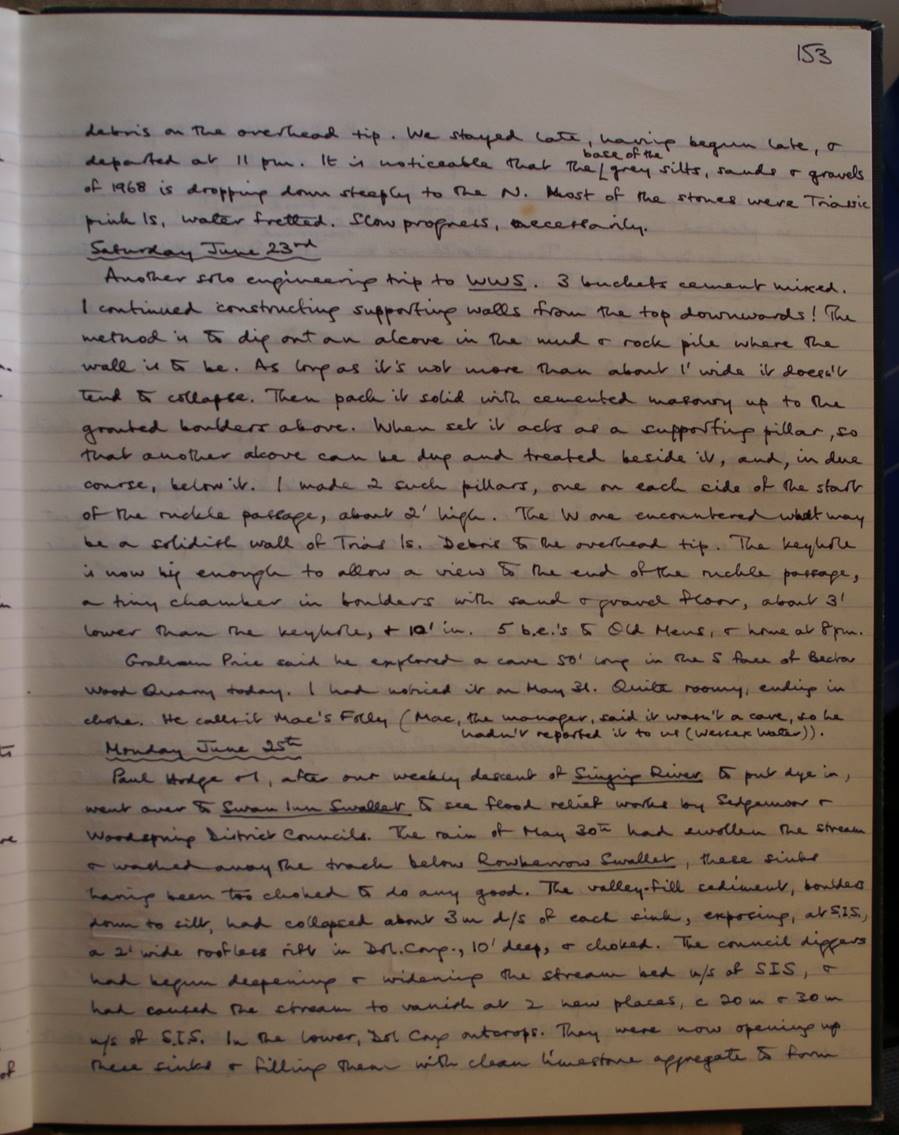 153
debris on the overhead tip. We stayed late, having begun late, &
departed at 11 pm. It is noticeable that the base of the grey silts, sands & gravels
of 1968 is dropping down steeply to the N. Most of the stones were Triassic
pink ls, water fretted. Slow progress, necessarily.
Saturday June 23rd
Another solo engineering trip to WWS. 3 buckets cement mixed.
I continued constructing supporting walls from the top downwards! The
method is to dig out an alcove in the mud & rock pile where the
wall is to be. As long as it's not more than about 1' wide it doesn't
tend to collapse. Then pack it solid with cemented masonry up to the
grouted boulders above. When set it acts as a supporting pillar, so
that another alcove can be dug and treated beside it, and, in due
course, below it. I made 2 such pillars, one on each side of the start
of the ruckle passage, about 2' high. The W one encountered what may
be a solidish wall of Trias ls. Debris to the overhead tip. The keyhole
is now big enough to allow a view to the end of the ruckle passage,
a tiny chamber in boulders with sand & gravel floor, about 3'
lower than the keyhole, & 10' in. 5 b.c.'s to Old Mens, & home at 8pm.
Graham Price said he explored a cave 50' long in the S face of Becton
Wood Quarry today. I had noticed it on May 31. Quite roomy, ending in
choke. He calls it Mac's Folly (Mac, the manager, said it wasn't a cave, so he
hadn't reported it to us (Wessex Water)).
Monday June 25th
Paul Hodge & I, after our weekly descent of Singing River to put dye in,
went over to Swan Inn Swallet to see flood relief works by Sedgemoor &
Woodspring District Councils. The rain of May 30th had swollen the stream
& washed away the track below Rowberrow Swallet, these sinks
having been too choked to do any good. The valley-fill sediment, boulders
down to silt, had collapsed about 3m d/s of each sink, exposing, at S.I.S.,
a 2' wide roofless rift in Dol. Cong., 10' deep, & choked. The council diggers
had begun deepening & widening the stream bed u/s of SIS, &
had caused the stream to vanish at 2 new places, c 20m & 30m
u/s of S.I.S. In the lower, Dol Cong outcrops. They were now opening up
these sinks & filling them with clean limestone aggregate to form